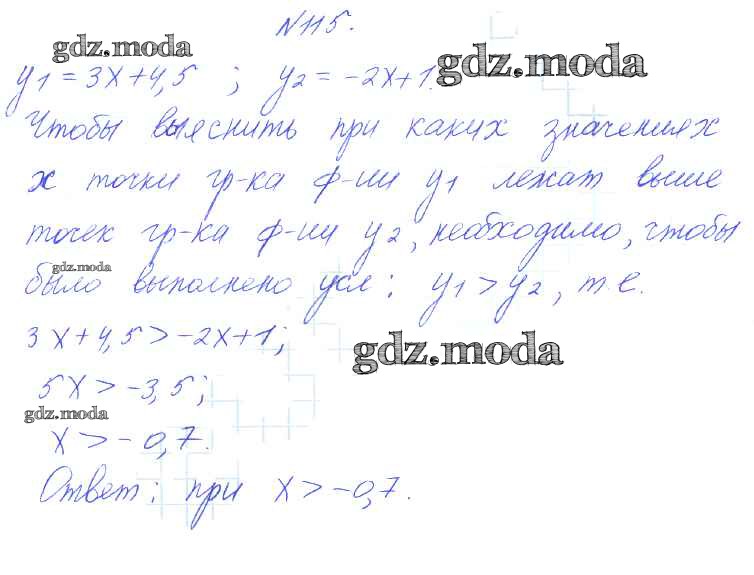 N115.
gdz.moda
gdz.moda
y1 = 3x+4,5 ; y2 = -2x+1.
Чтобы выяснить при каких значениях
x точки гр-ка ф-ии y1 лежат выше
точек гр-ка ф-ии y2, необходимо, чтобы
gdz.moda
было выполнено усл: y1 > y2, т.е.
3x+4,5>-2x+1;
gdz.moda
5x > -3,5;
gdz.moda
x > -0,7.
Ответ: при x > -0,7.